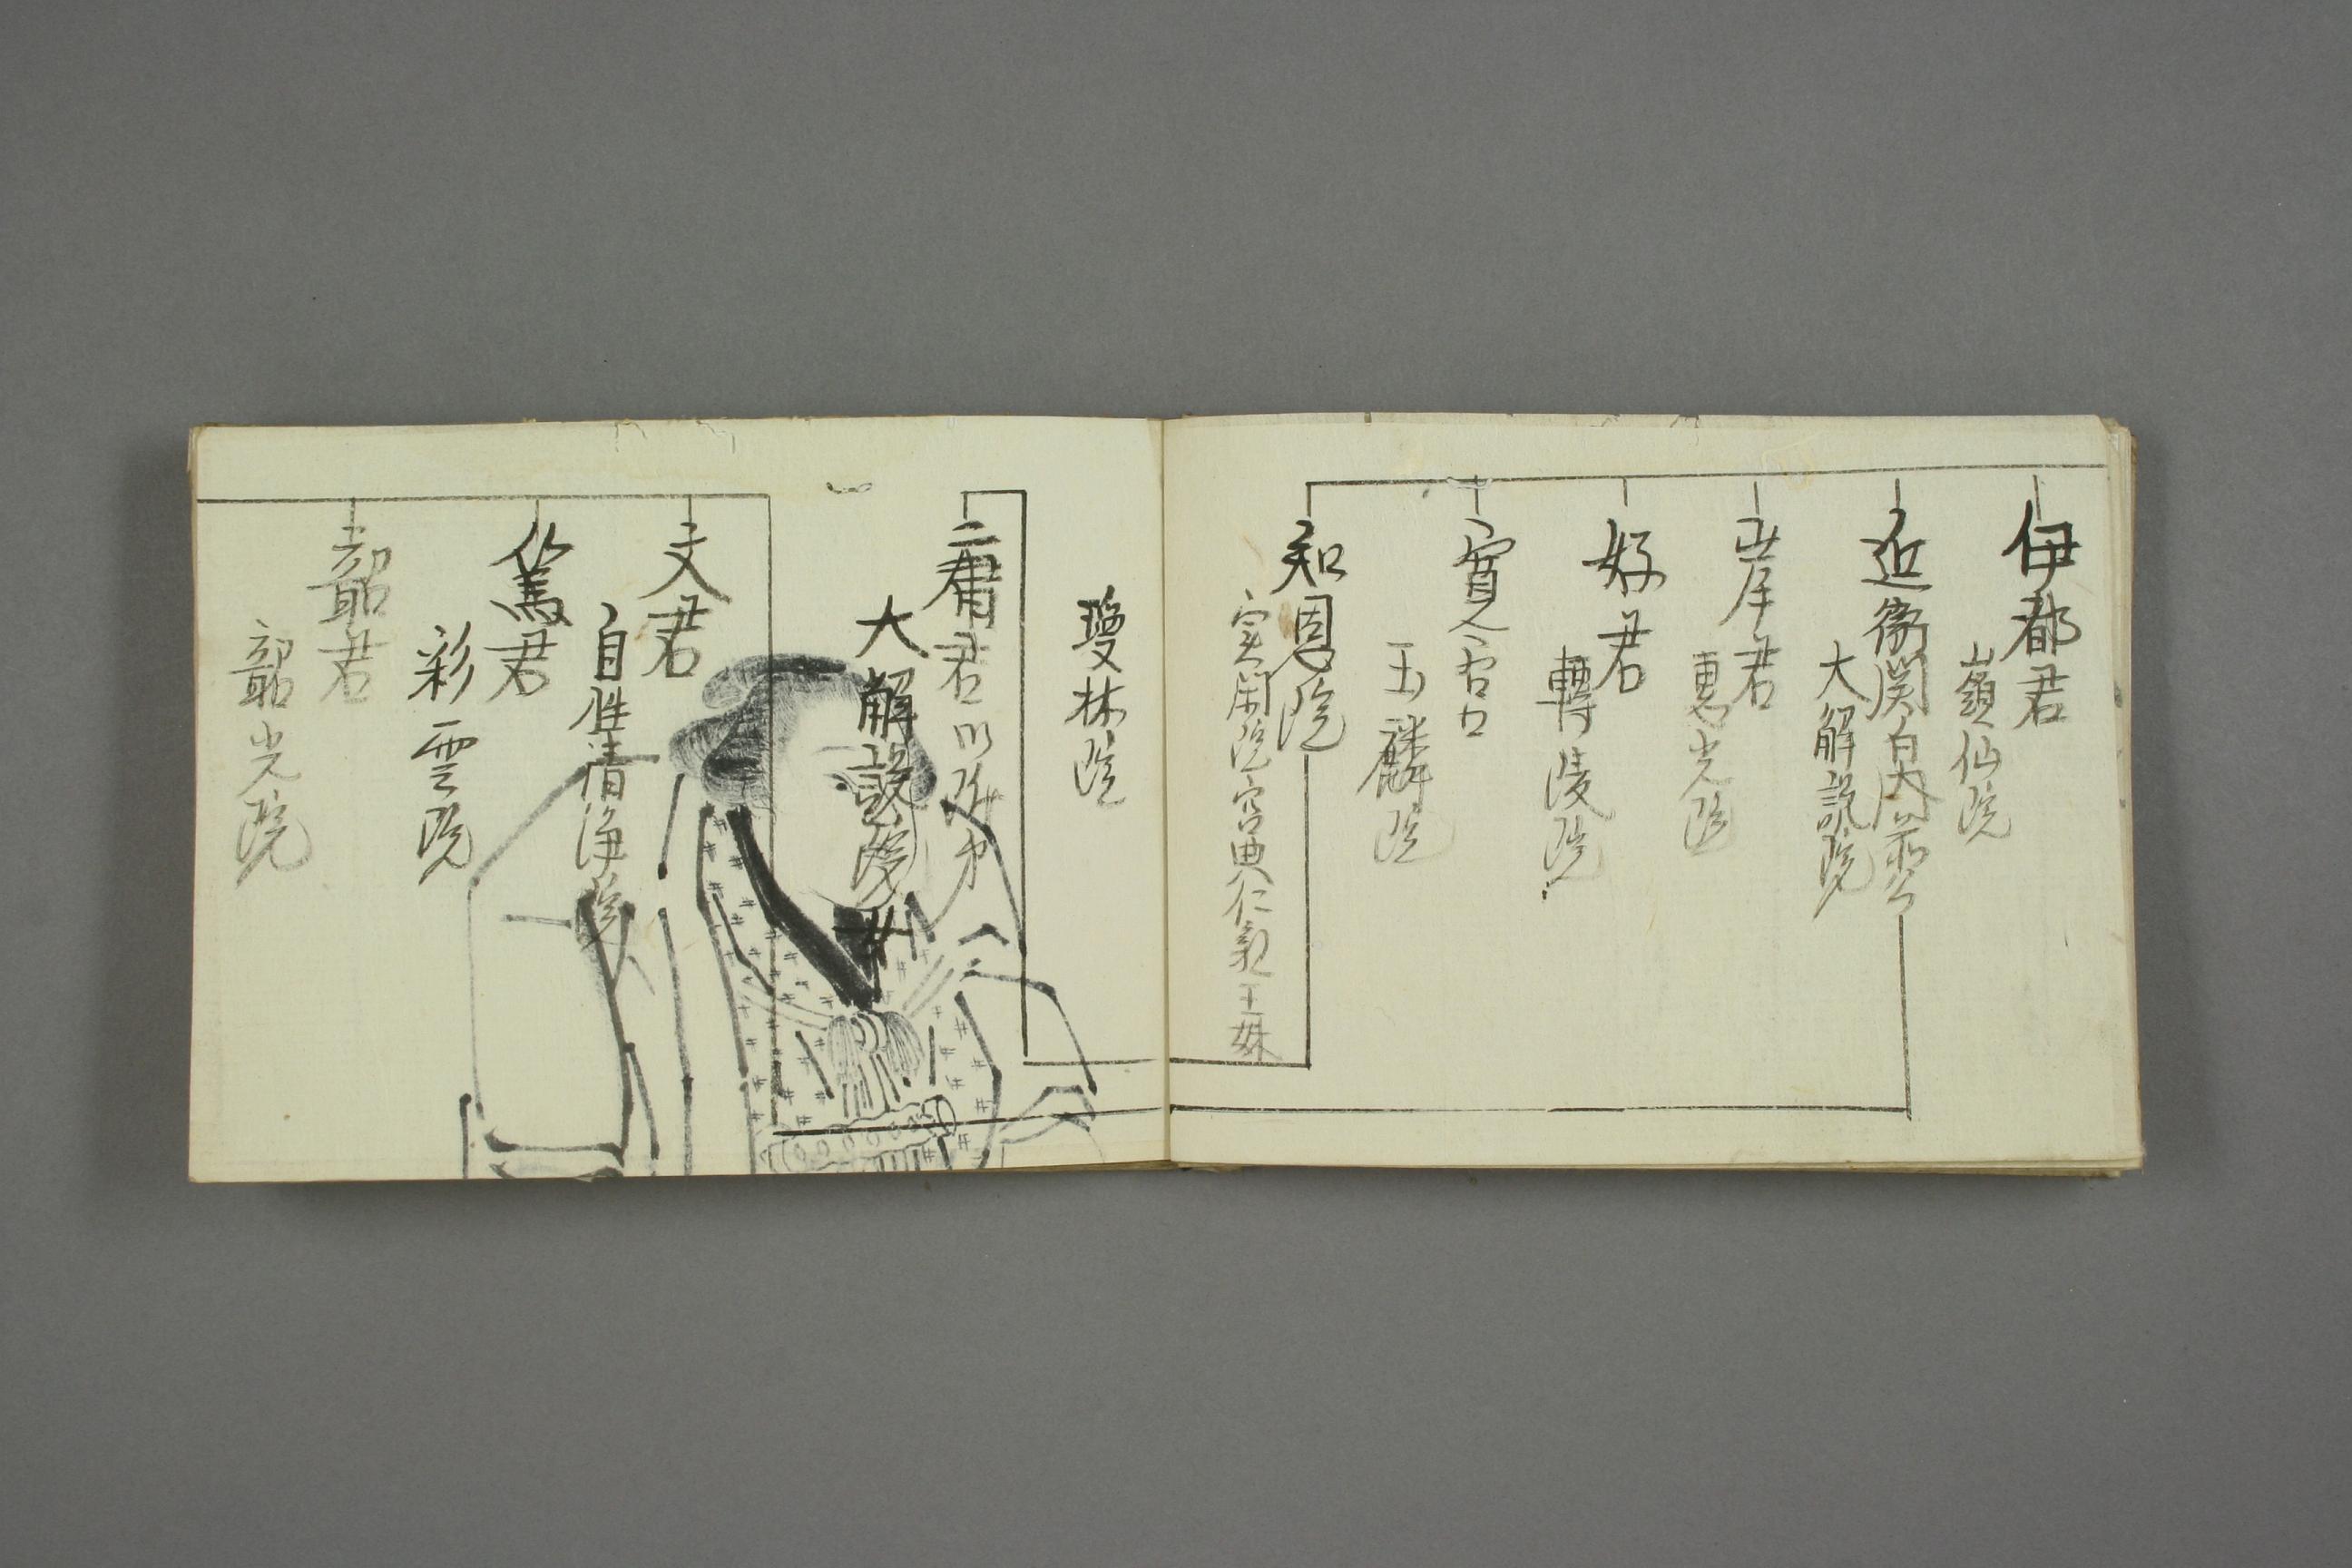 伊都君
嶺仙院
近衛関白内前公
大解説院
峯君
惠光院
好君
轉陵院
寛君
玉麟院
知恩院
実閑院宮典仁親王妹
瓊林院
庸君
大解説院
文君
自性清浄院
篤君
彩雲院
韶君
韶光院